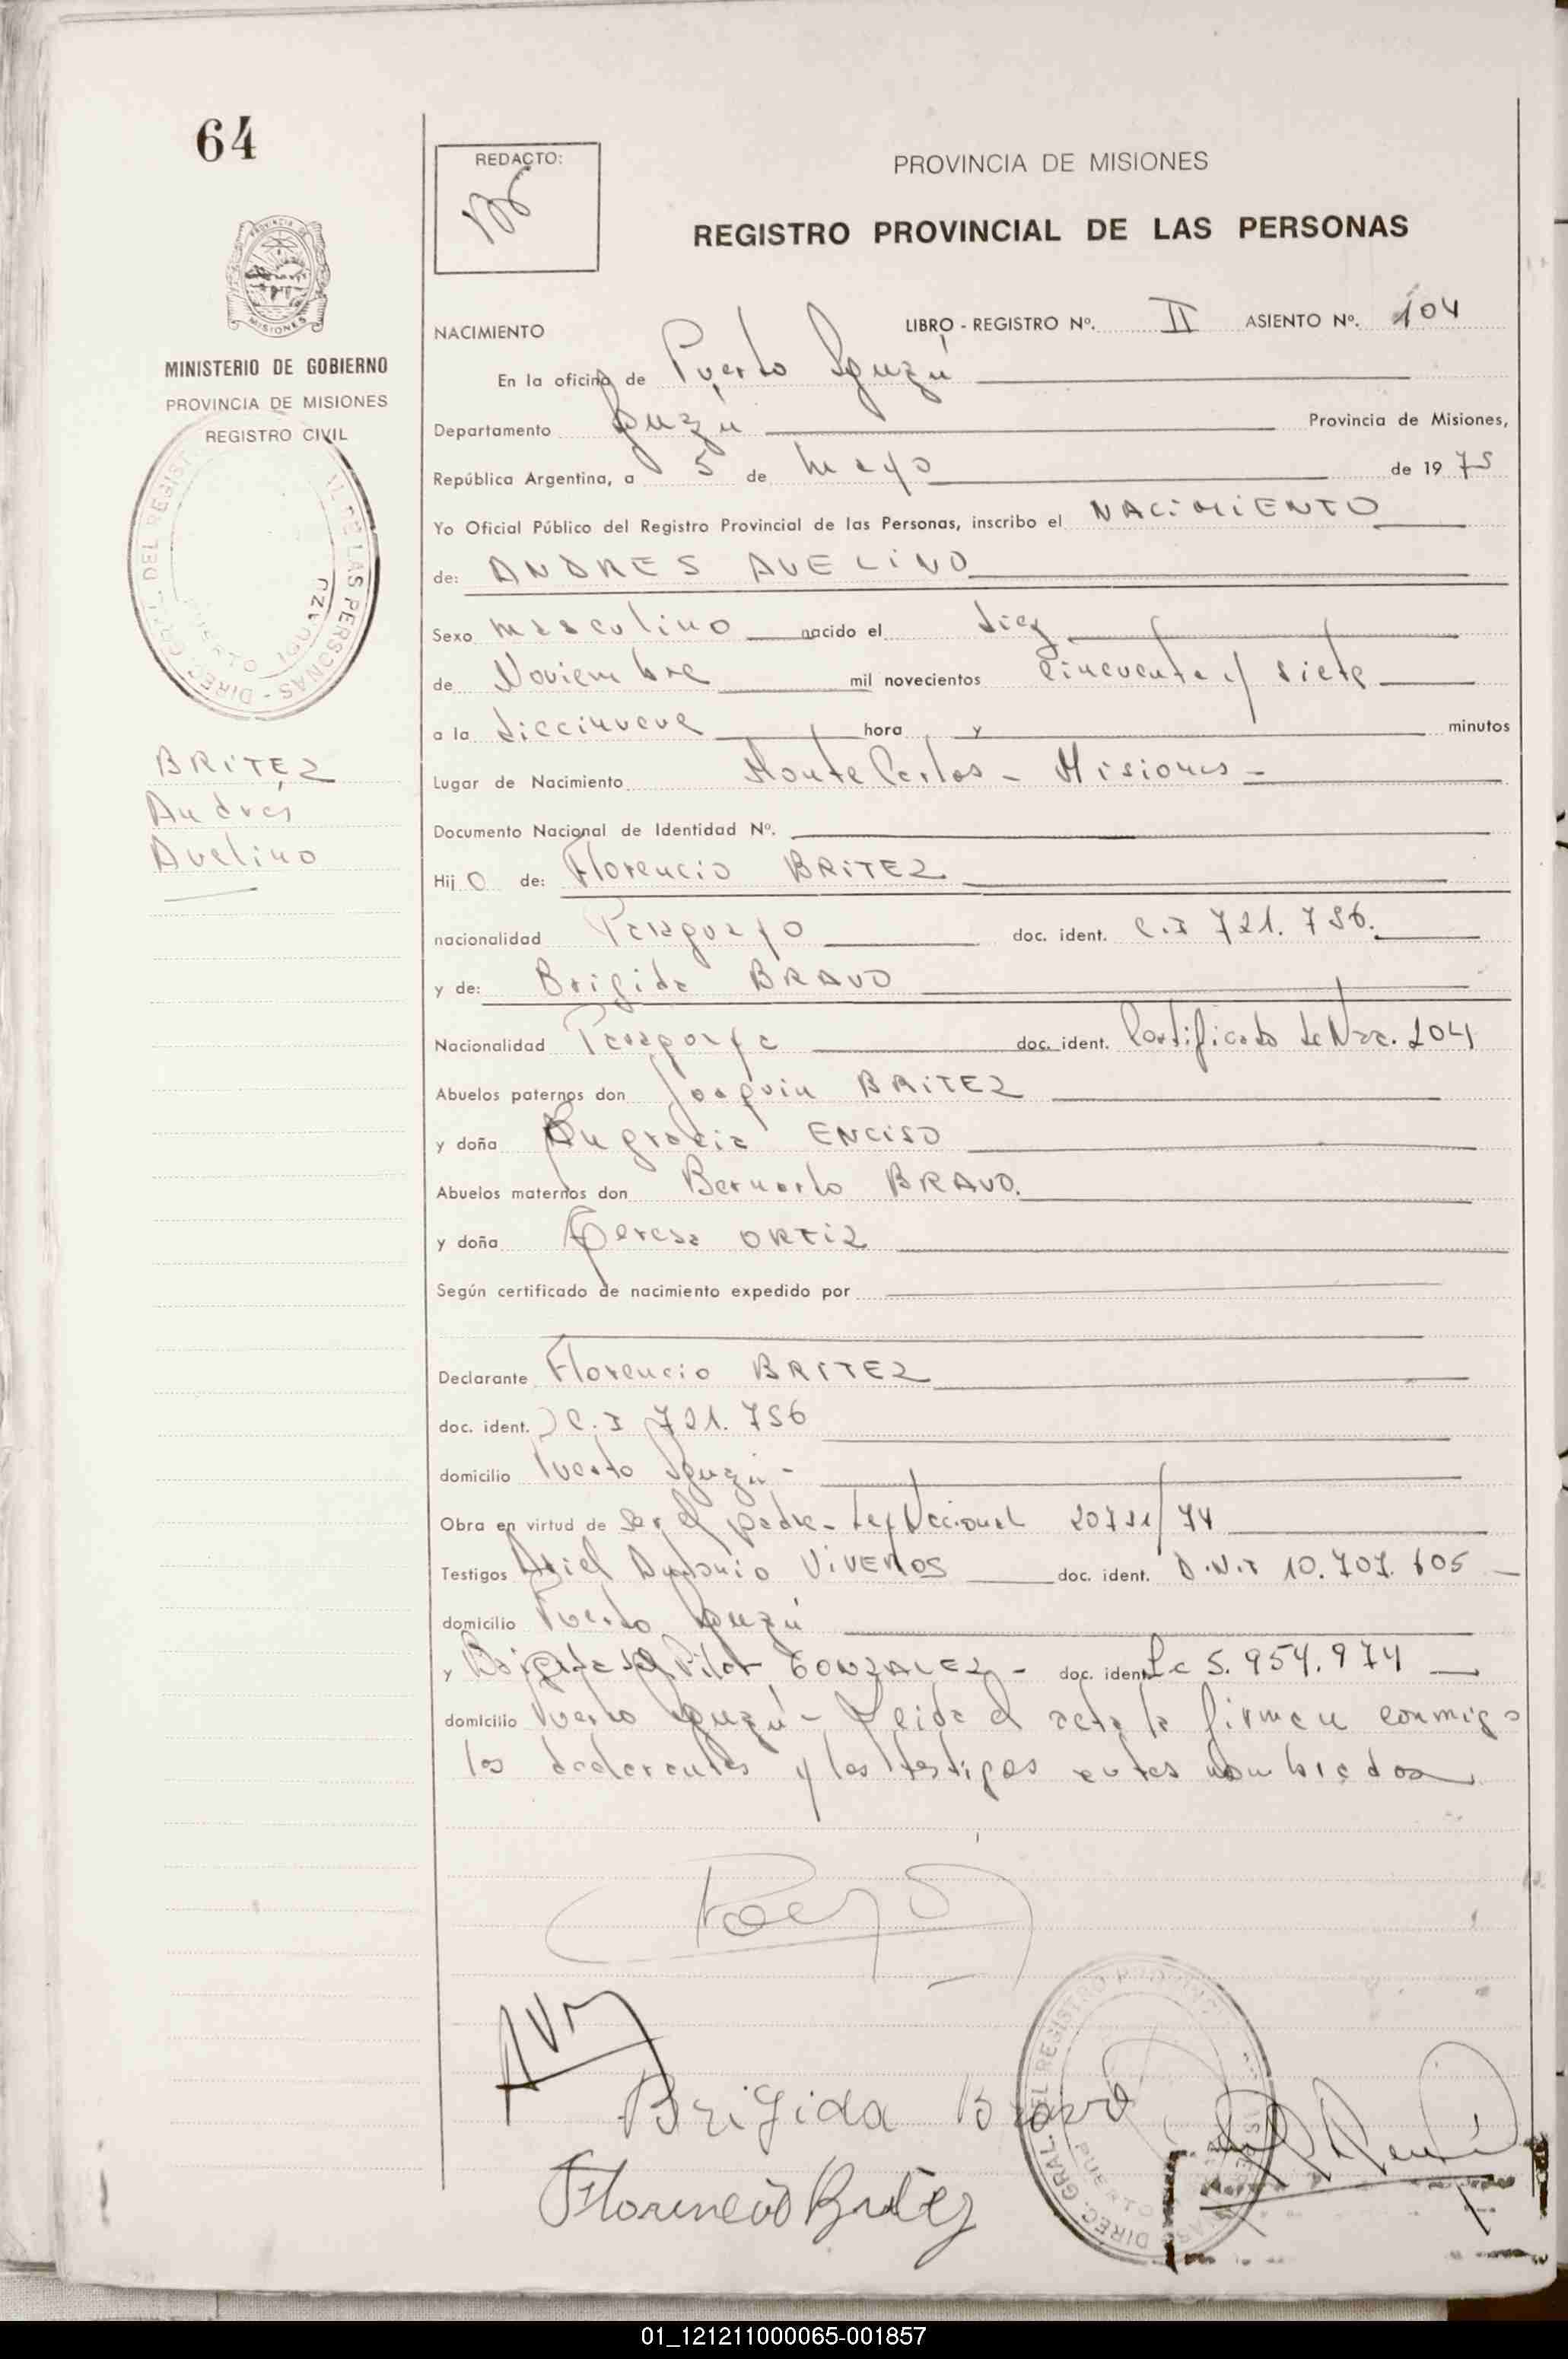 64
REDACTO:
PROVINCIA DE MISIONES
REGISTRO PROVINCIAL DE LAS PERSONAS
PROVINCIA DE
MISIONES
MINISTERIO DE GOBIERNO
PROVINCIA DE MISIONES
REGISTRO CIVIL
NACIMIENTO
LIBRO - REGISTRO Nº. II ASIENTO Nº. 104
En la oficina de Puerto Iguazú
Departamento Iguazú Provincia de Misiones,
República Argentina, a 5 de mayo de 1975
Yo Oficial Público del Registro Provincial de las Personas, inscribo el NACIMIENTO
de: ANDRES AVELINO
Sexo masculino nacido el diez
de Noviembre mil novecientos cincuenta y siete
a la diecinueve hora y minutos
BRITEZ
Andres
Avelino
Lugar de Nacimiento Monte Carlos - Misiones -
Documento Nacional de Identidad Nº.
Hijo de: Florencio BRITEZ
nacionalidad Paraguayo doc. ident. C.I 721.756.
y de: Brigida BRAVO
Nacionalidad Paraguaya doc. ident. Certificado de Nac. 104
Abuelos paternos don Joaquin BRITEZ
y doña Engracia ENCISO
Abuelos maternos don Bernardo BRAVO.
y doña Teresa ORTIZ
Según certificado de nacimiento expedido por
Declarante Florencio BRITEZ
doc. ident. C.I 721.756
domicilio Puerto Iguazú -
Obra en virtud de ser el padre - Ley Nacional 20751/74
Testigos Ariel Antonio VIVEROS doc. ident. D.N.I 10.707.605
domicilio Puerto Iguazú
y del Pilar GONZALEZ - doc. ident. Lc 5.954.974
domicilio Puerto Iguazú - Leida el acta la firman conmigo
los declarantes y los testigos antes nombrados
Brigida Bravo
Florencio Britez
01_121211000065-001857